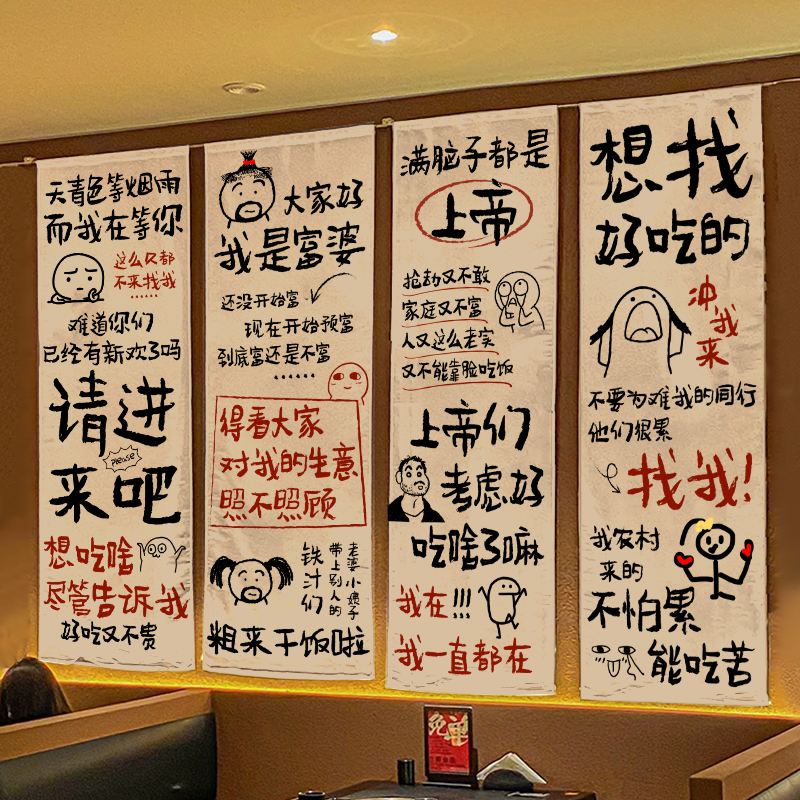 天青色等烟雨
而我在等你
这么久都
不来找我
......
难道你们
已经有新欢了吗
请进
please
来吧
想吃啥
尽管告诉我
好吃又不贵
大家好
我是富婆
还没开始富
现在开始预富
到底富还是不富
......
得看大家
对我的生意
照不照顾
铁汁们
带上别人的
老婆小姨子
粗来干饭啦
满脑子都是
上帝
抢劫又不敢
家庭又不富
人又这么老实
又不能靠脸吃饭
上帝们
考虑好
吃啥了嘛
我在!!!
我一直都在
想找
好吃的
冲我来
不要为难我的同行
他们很累
找我!
我农村
来的
不怕累
能吃苦
免单